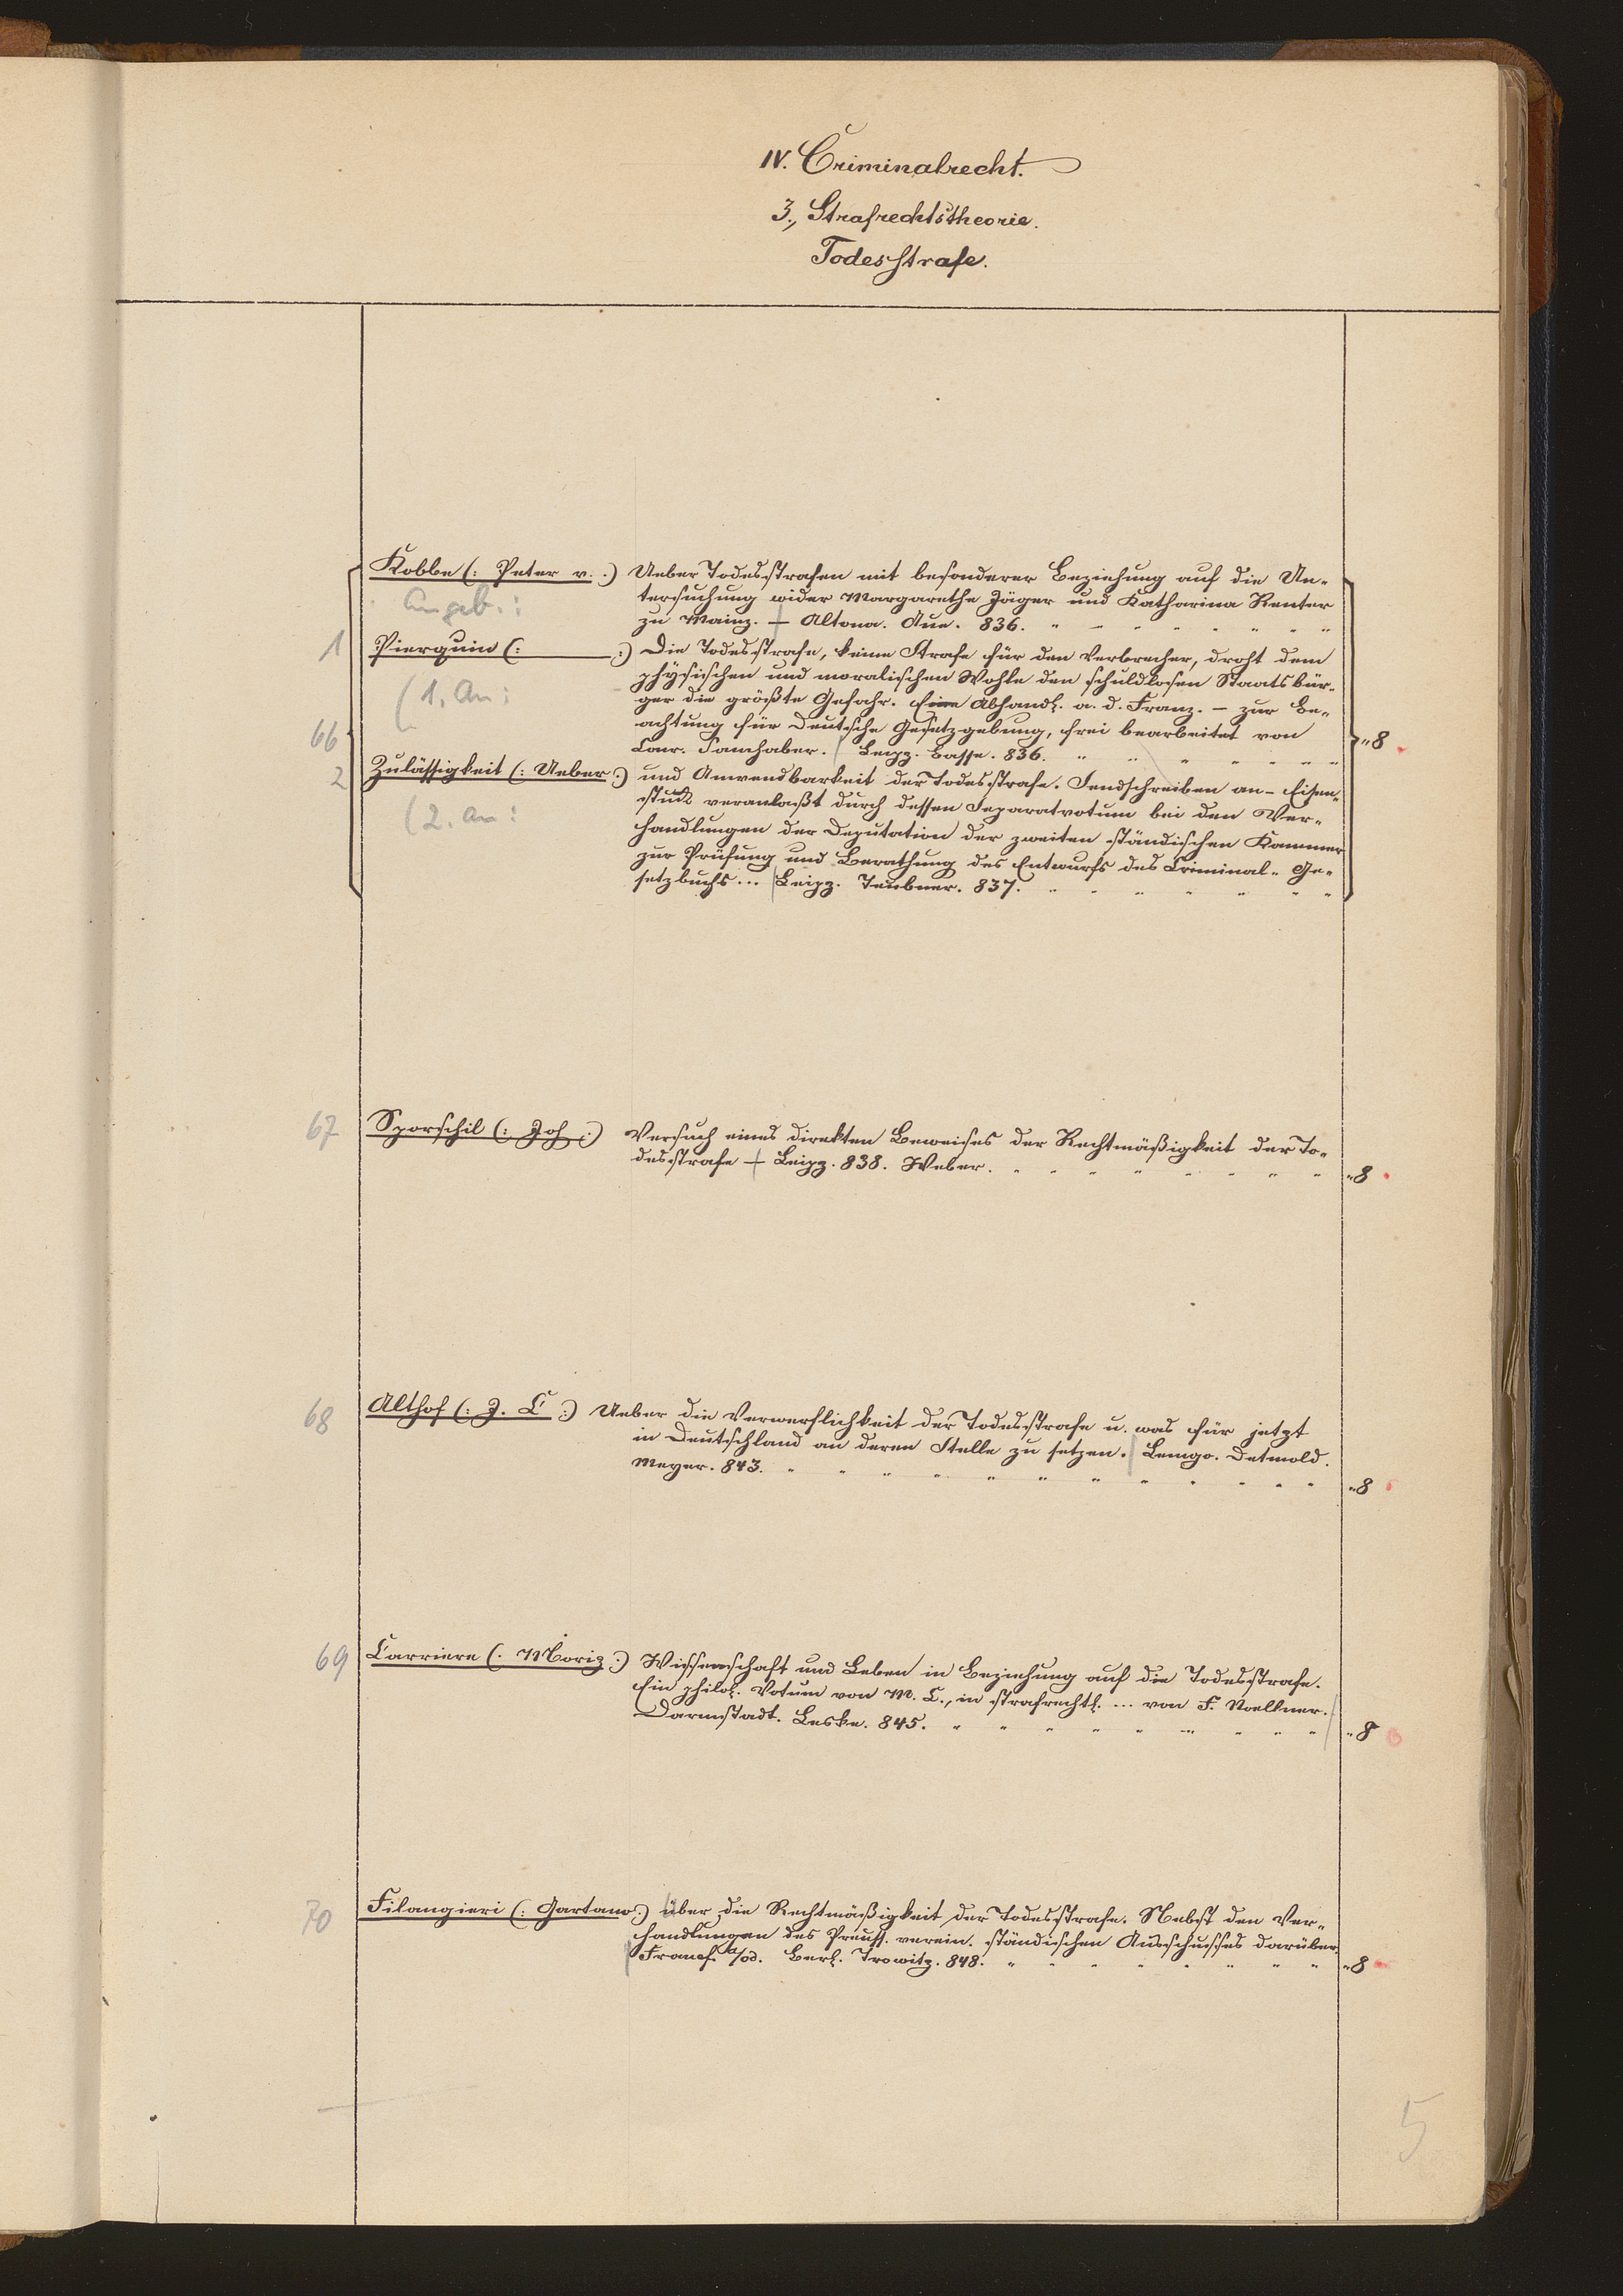 IV. Criminalrecht.
3., Strafrechtstheorie.
Todesstrafe.
Kobbe (: Peter v. :) Ueber Todesstrafen mit besonderer Beziehung auf die Un-
Angeb.: tersuchung wider Margarethe Jäger und Katharina Reuter
zu Mainz. – Altona. Aue. 836.
1 Pierquin (: :) Die Todesstrafe, keine Strafe für den Verbrecher, droht dem
physischen und moralischen Wohle den schuldlosen Staatsbür-
(1. An: ger die größte Gefahr. Eine Abhandl. a. d. Franz. – zur Be-
66 achtung für deutsche Gesetzgebung, frei bearbeitet von
Conr. Samhaber. Leipz. Basse. 836. " 8
2 Zulässigkeit (: Ueber :) und Anwendbarkeit der Todesstrafe. Sendschreiben an – Eisen-
(2. An: stuck veranlaßt durch dessen Separatvotum bei den Ver-
handlungen der Deputation der zweiten ständischen Kammer
zur Prüfung und Berathung des Entwurfs des Criminal-Ge-
setzbuchs... Leipz. Teubner. 837.
67 Sporschil (: Joh :) Versuch eines direkten Beweises der Rechtmäßigkeit der To-
desstrafe – Leipz. 838. Weber. " 8
68 Althof (: J. C :) Ueber die Verwerflichkeit der Todesstrafe u. was für jetzt
in Deutschland an deren Stelle zu setzen. Lemgo. Detmold.
Meyer. 843. " 8
69 Carriere (: Moriz :) Wissenschaft und Leben in Beziehung auf die Todesstrafe.
Ein philos. Votum von M. C., in strafrechtl. ... von F. Noellner.
Darmstadt. Leske. 845. " 8
70 Filangieri (: Gartano :) über die Rechtmäßigkeit der Todesstrafe. Nebst den Ver-
handlungen des Preuss. verein. ständischen Ausschusses darüber.
Francf. a/Od. Berl. Trowitz. 848. " 8
5